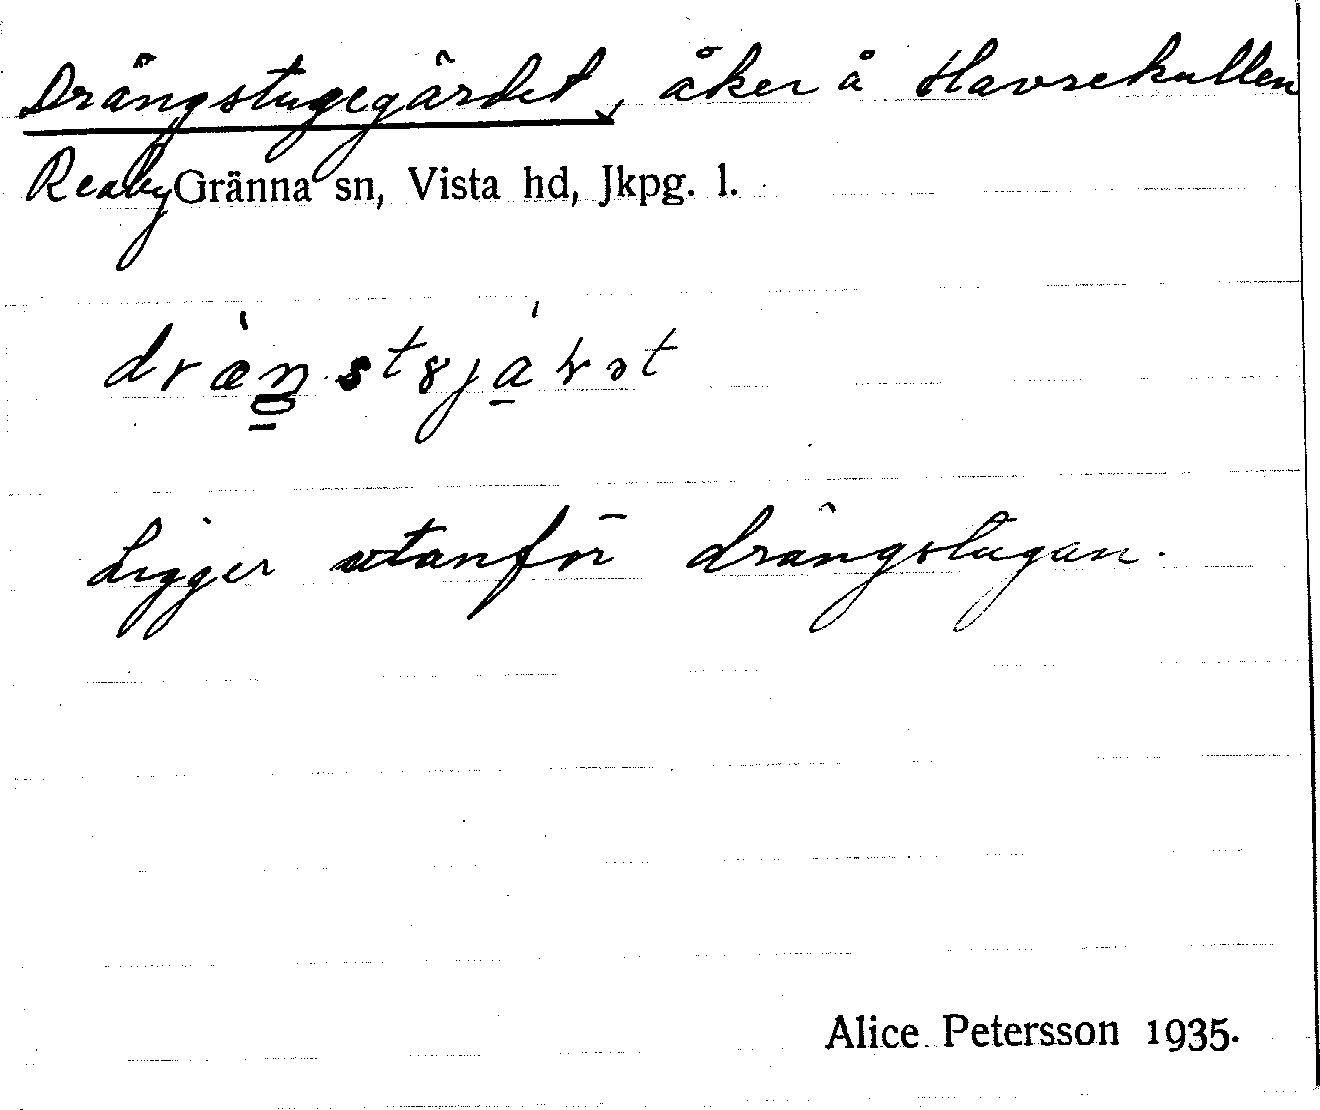 Drängstugegärdet, åker å Havrekullen
Reaby Gränna sn, Vista hd, Jkpg. l.
Ligger utanför drängstugan.
Alice Petersson 1935.